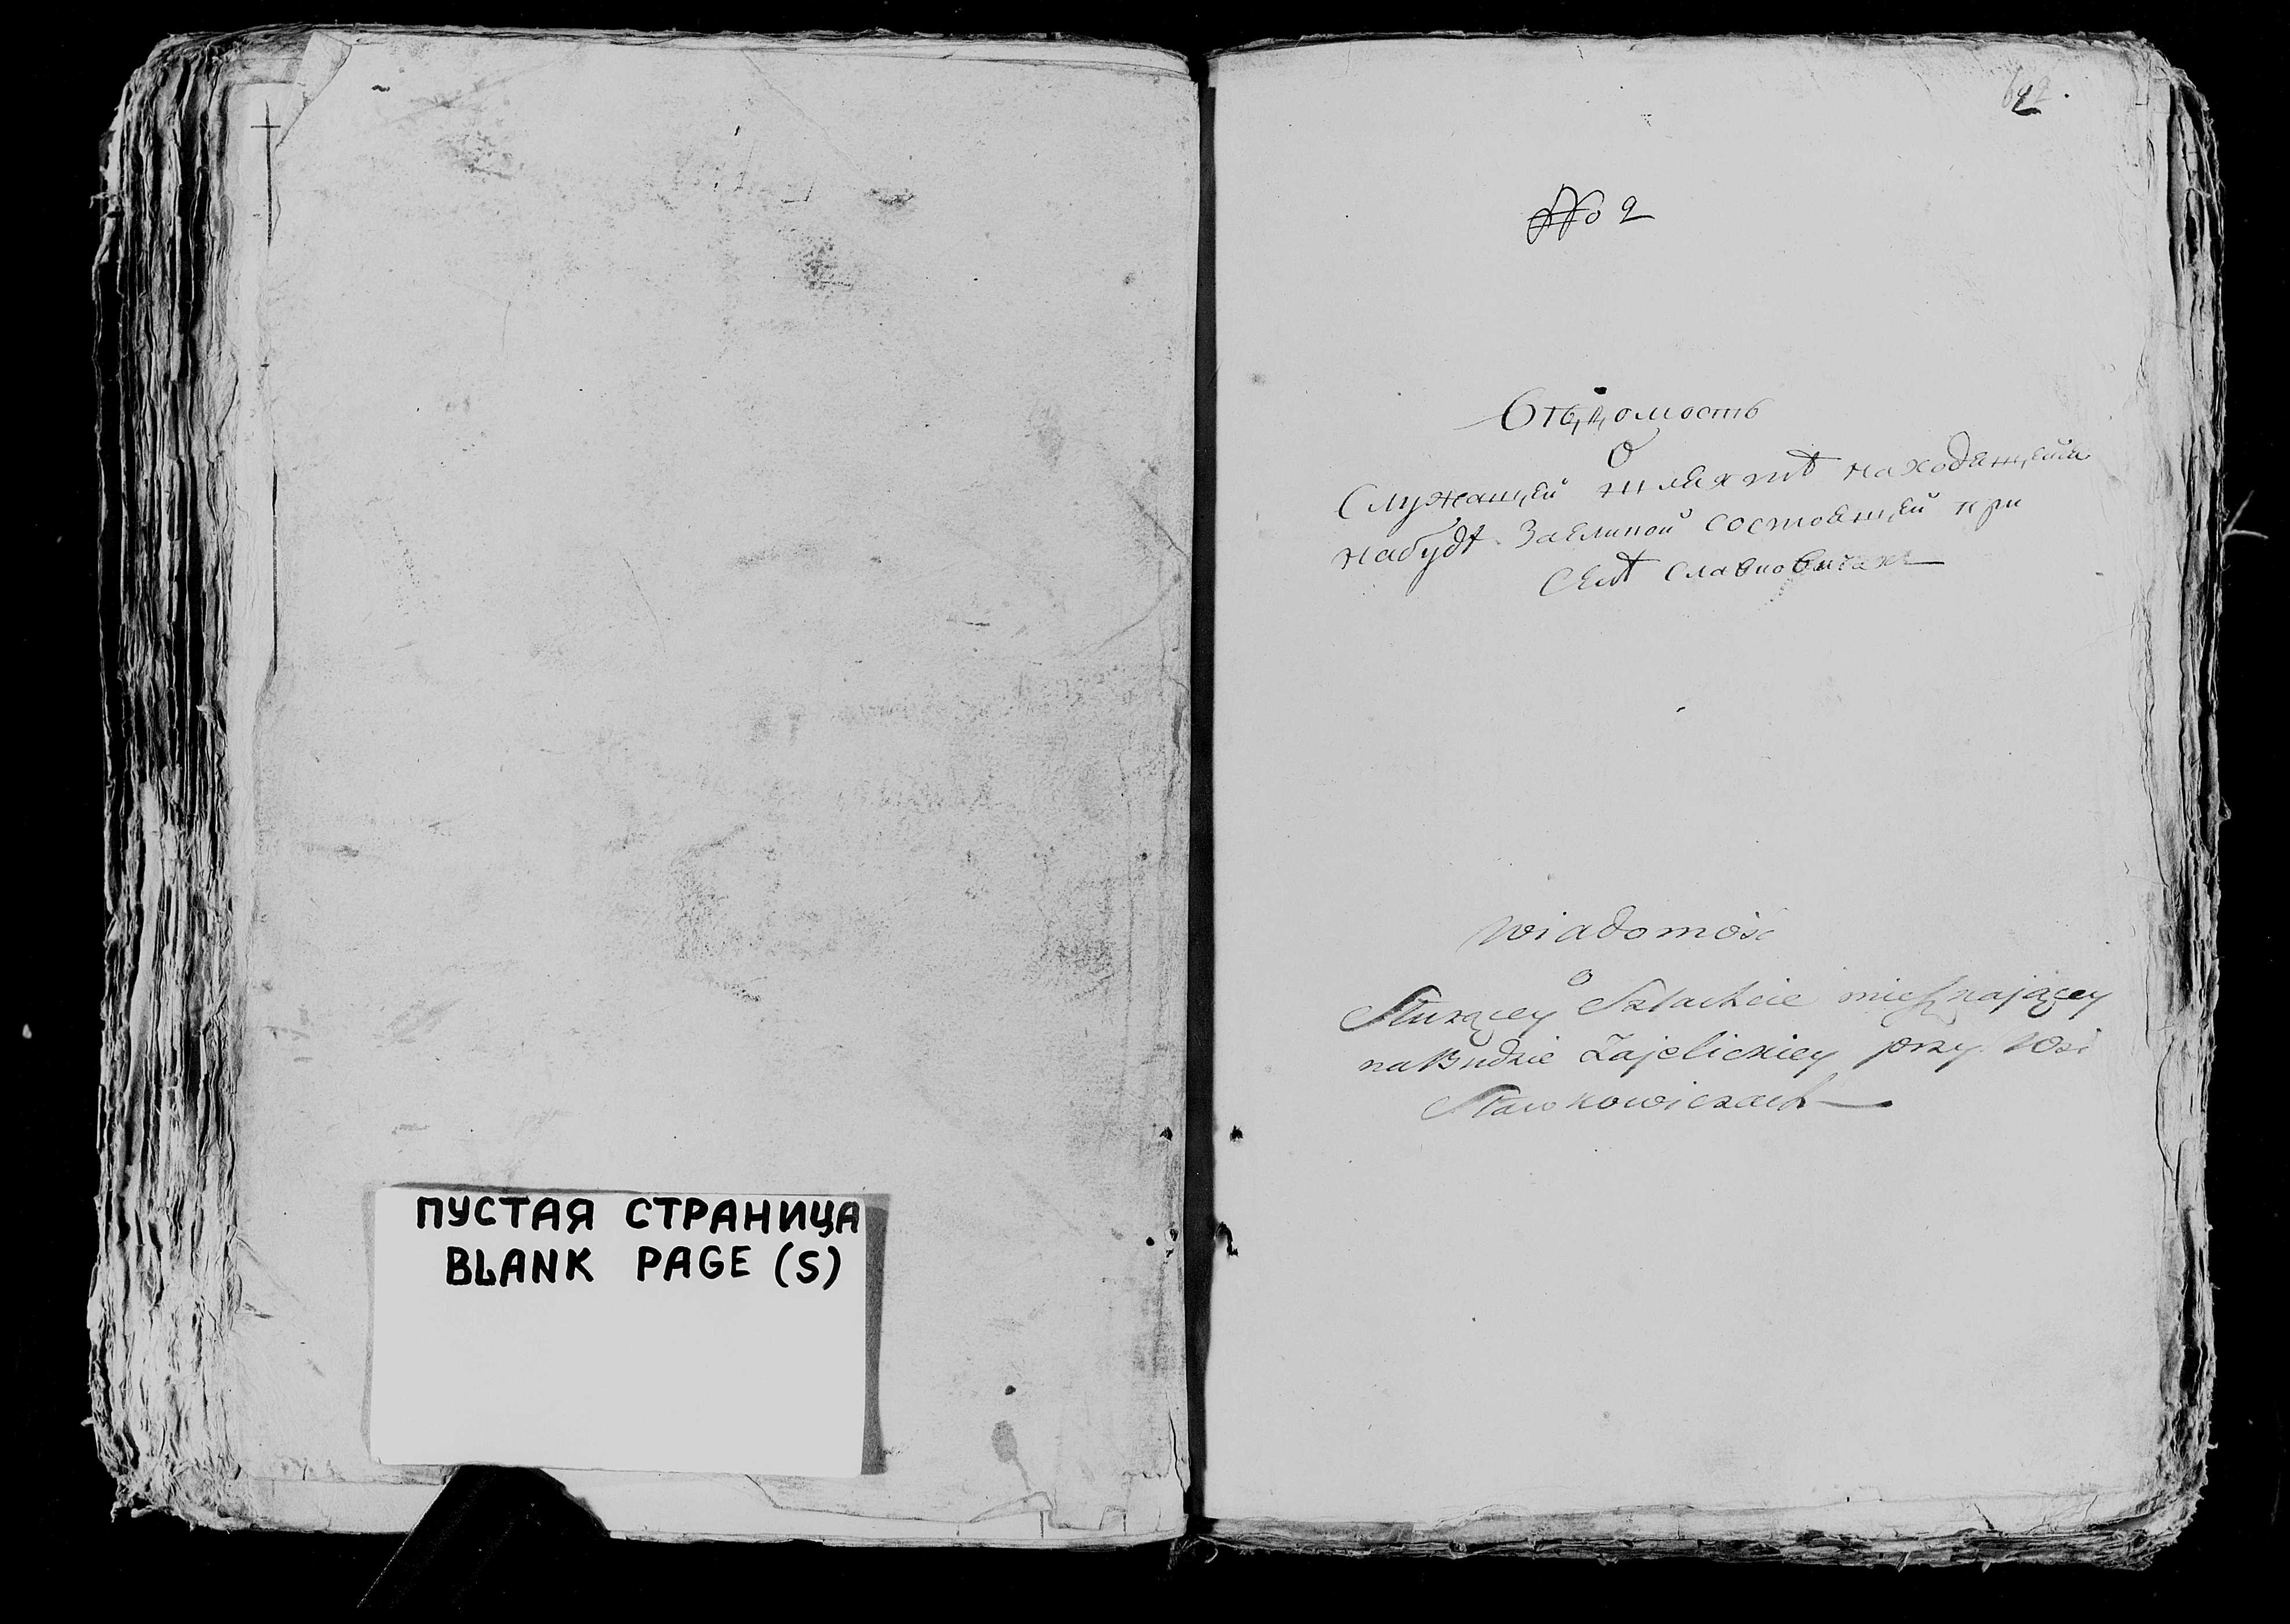 ПУСТАЯ СТРАНИЦА
BLANK PAGE (S)
No 2
Вѣдомость
О
Служащей шляхтѣ находящейся
на будѣ Заелицкой состоящей при
Селѣ Славковичах
Wiadomość
o
Służącey Szlachcie mieszkającey
na Budzie Zajelickiey przy Wsi
Sławkowiczach